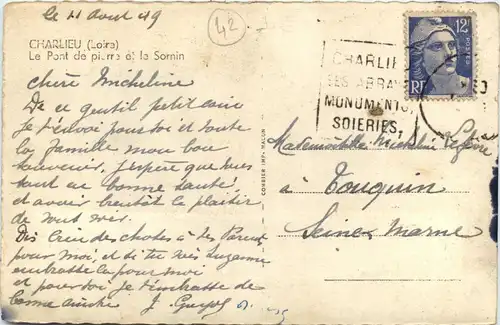 le 11 Aout 49
42
CHARLIEU (Loire)
Le Pont de pierre et le Sornin
chère Micheline
De ce gentil petit coin
je t'envoi pour toi et toute
la famille mon bon
souvenir, j'espère que vous
tous en bonne santé
et avoir bientôt le plaisir
de vous voir.
Dis bien des choses à tes Parents
pour moi, et si tu vois Suzanne
embrasse la pour moi
et pour toi je t'embrasse de
bonne amitié J.
COMBIER IMP. MACON
CHARLIE
SES ABBAY
MONUMENTS,
SOIERIES,
12F
POSTES
RF
Mademoiselle Micheline
à Touquin
Seine & Marne